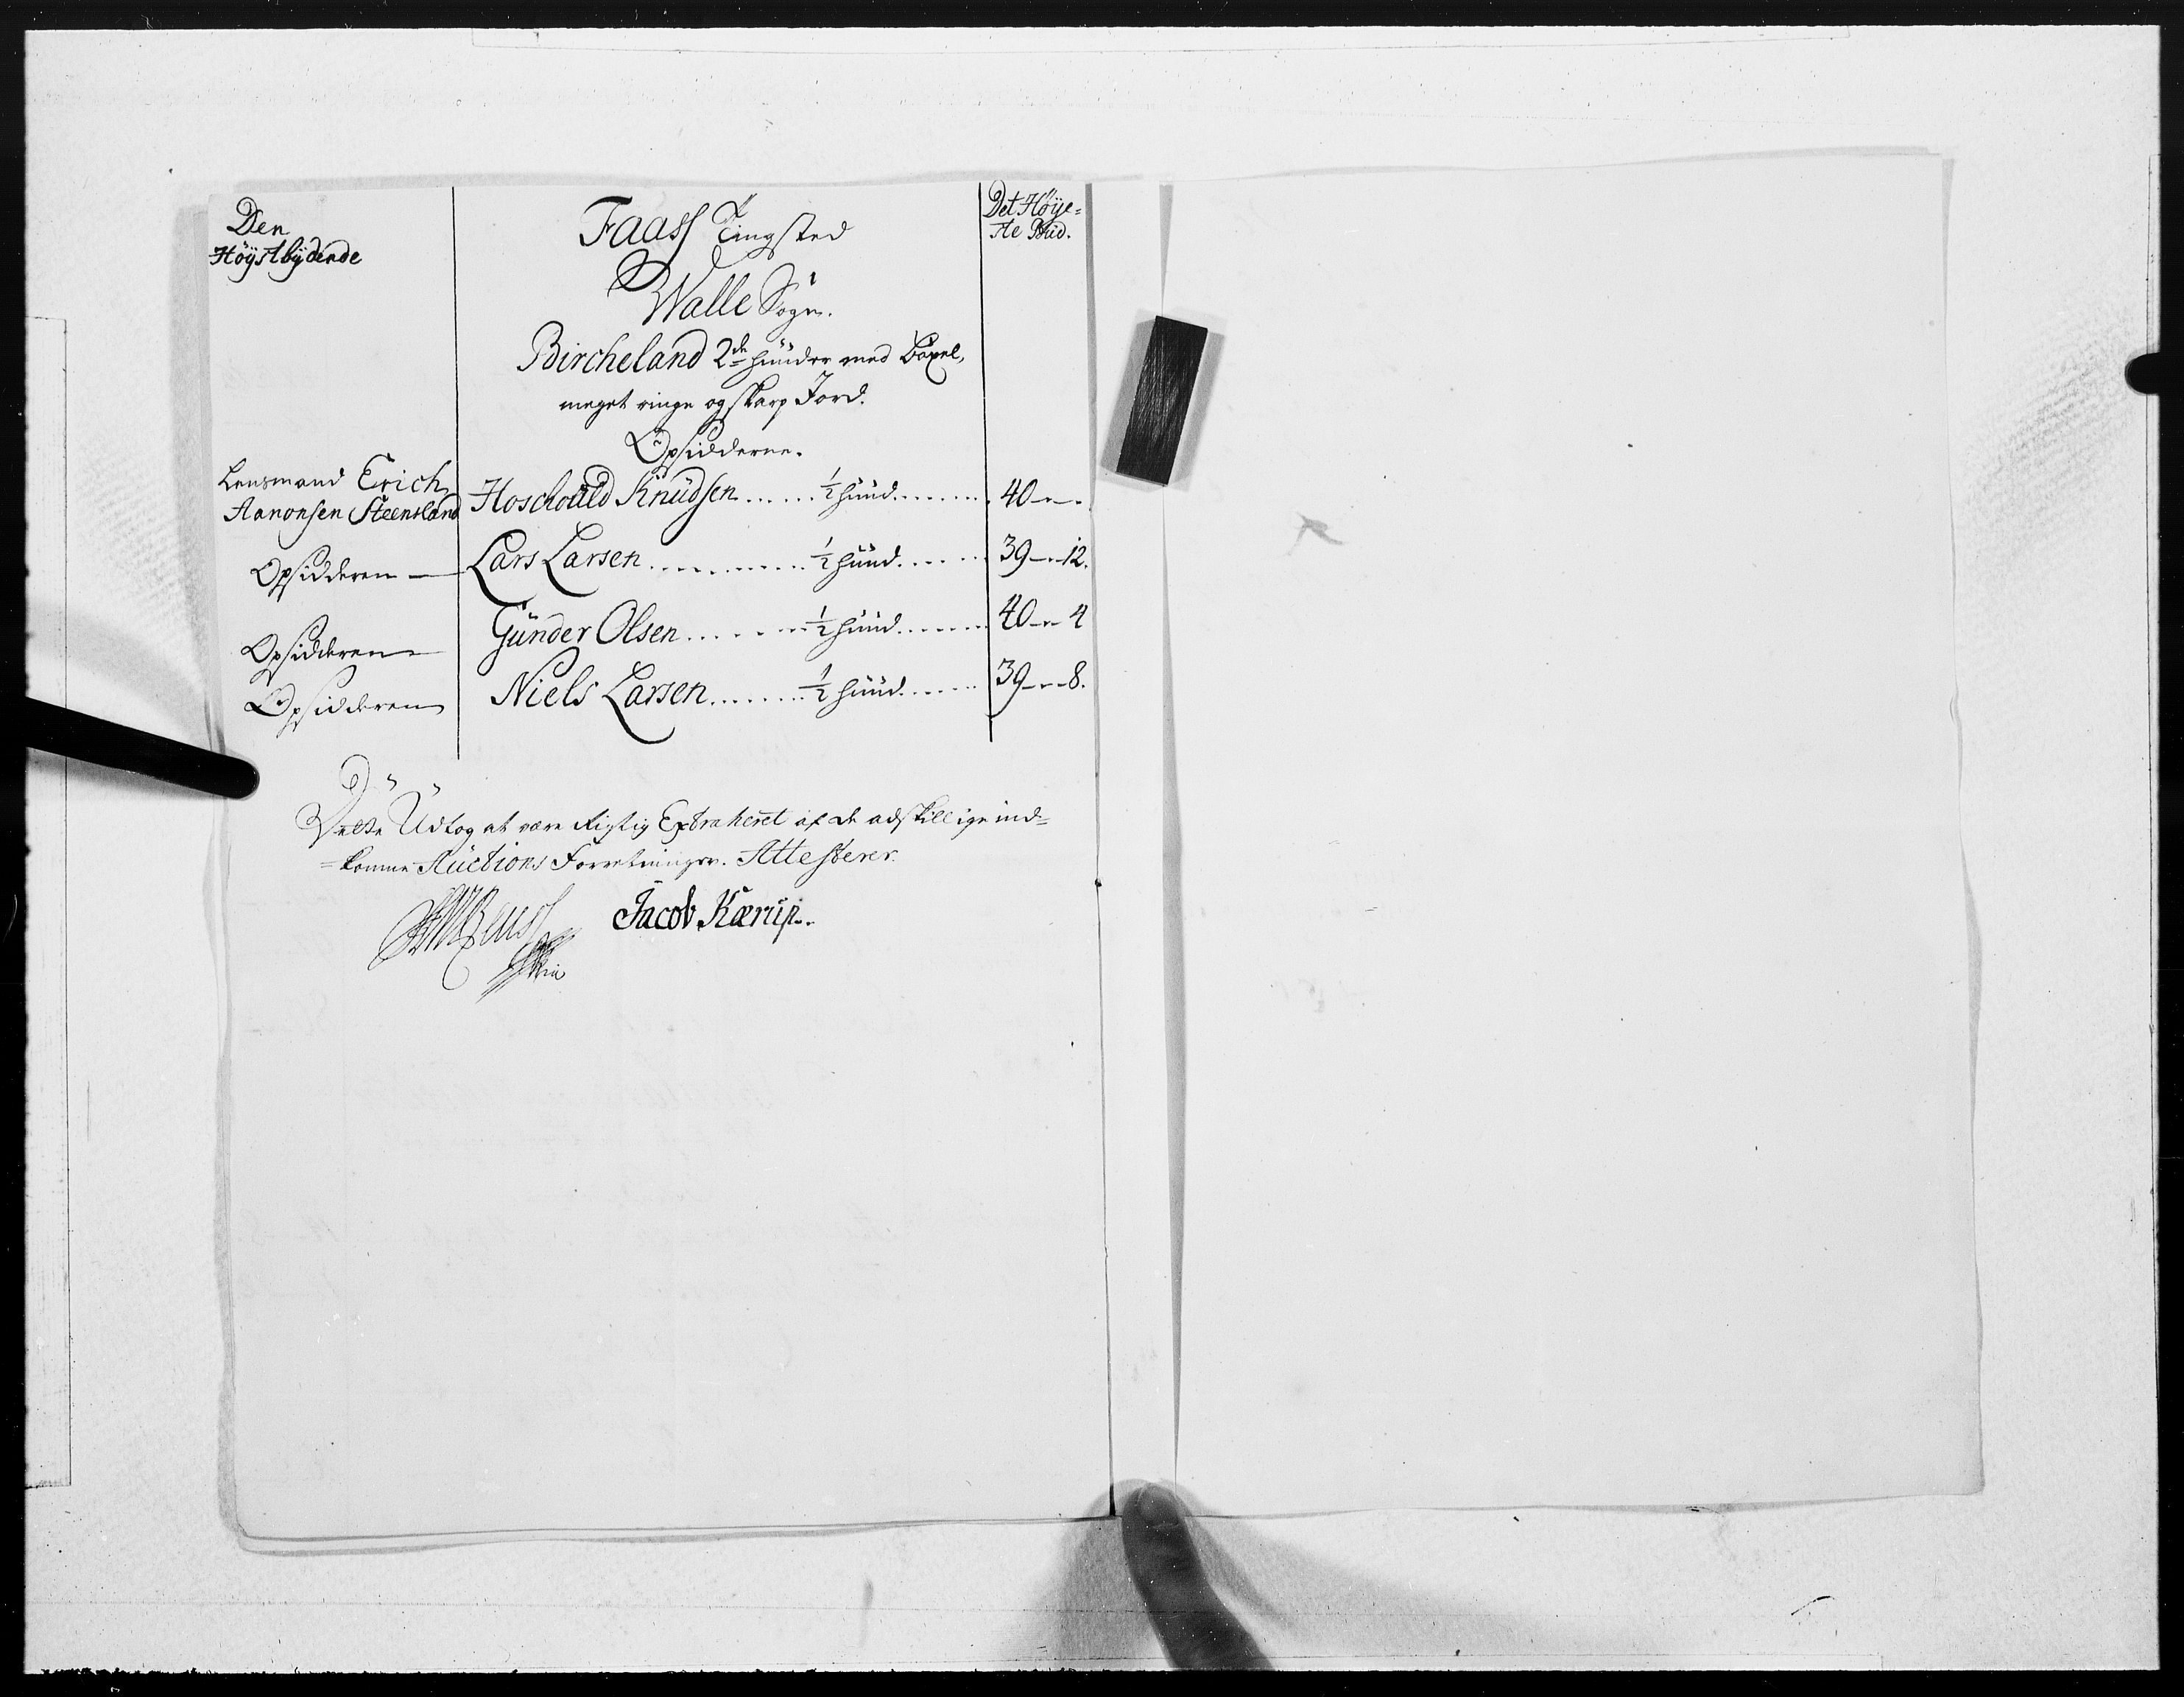 Den
Höystbÿdende
Faass Tingsted
Det Höije=
ste Bud.
Walle Sogn.
Bircheland 2de hünder med böxel,
meget ringe og skarp Jord.
Opsidderne.
Lensmand Erich
Aanonsen Steensland
Hoschould Knüdsen ...... ½ hüud ........ 40 - - -
Opsidderen — Lars Larsen .......... ½ hüud ...... 39 - - 12.
Opsidderen Günder Olsen ....... ½ hüud ....... 40 - - 4
Opsidderen Niels Larsen ....... ½ hüud ...... 39 - - 8.
Dette Üdtog at være Rigtig Extraheret af de adskillige ind=
=komne Auctions Forretninger. Attesterer
Jacob Kærüp.